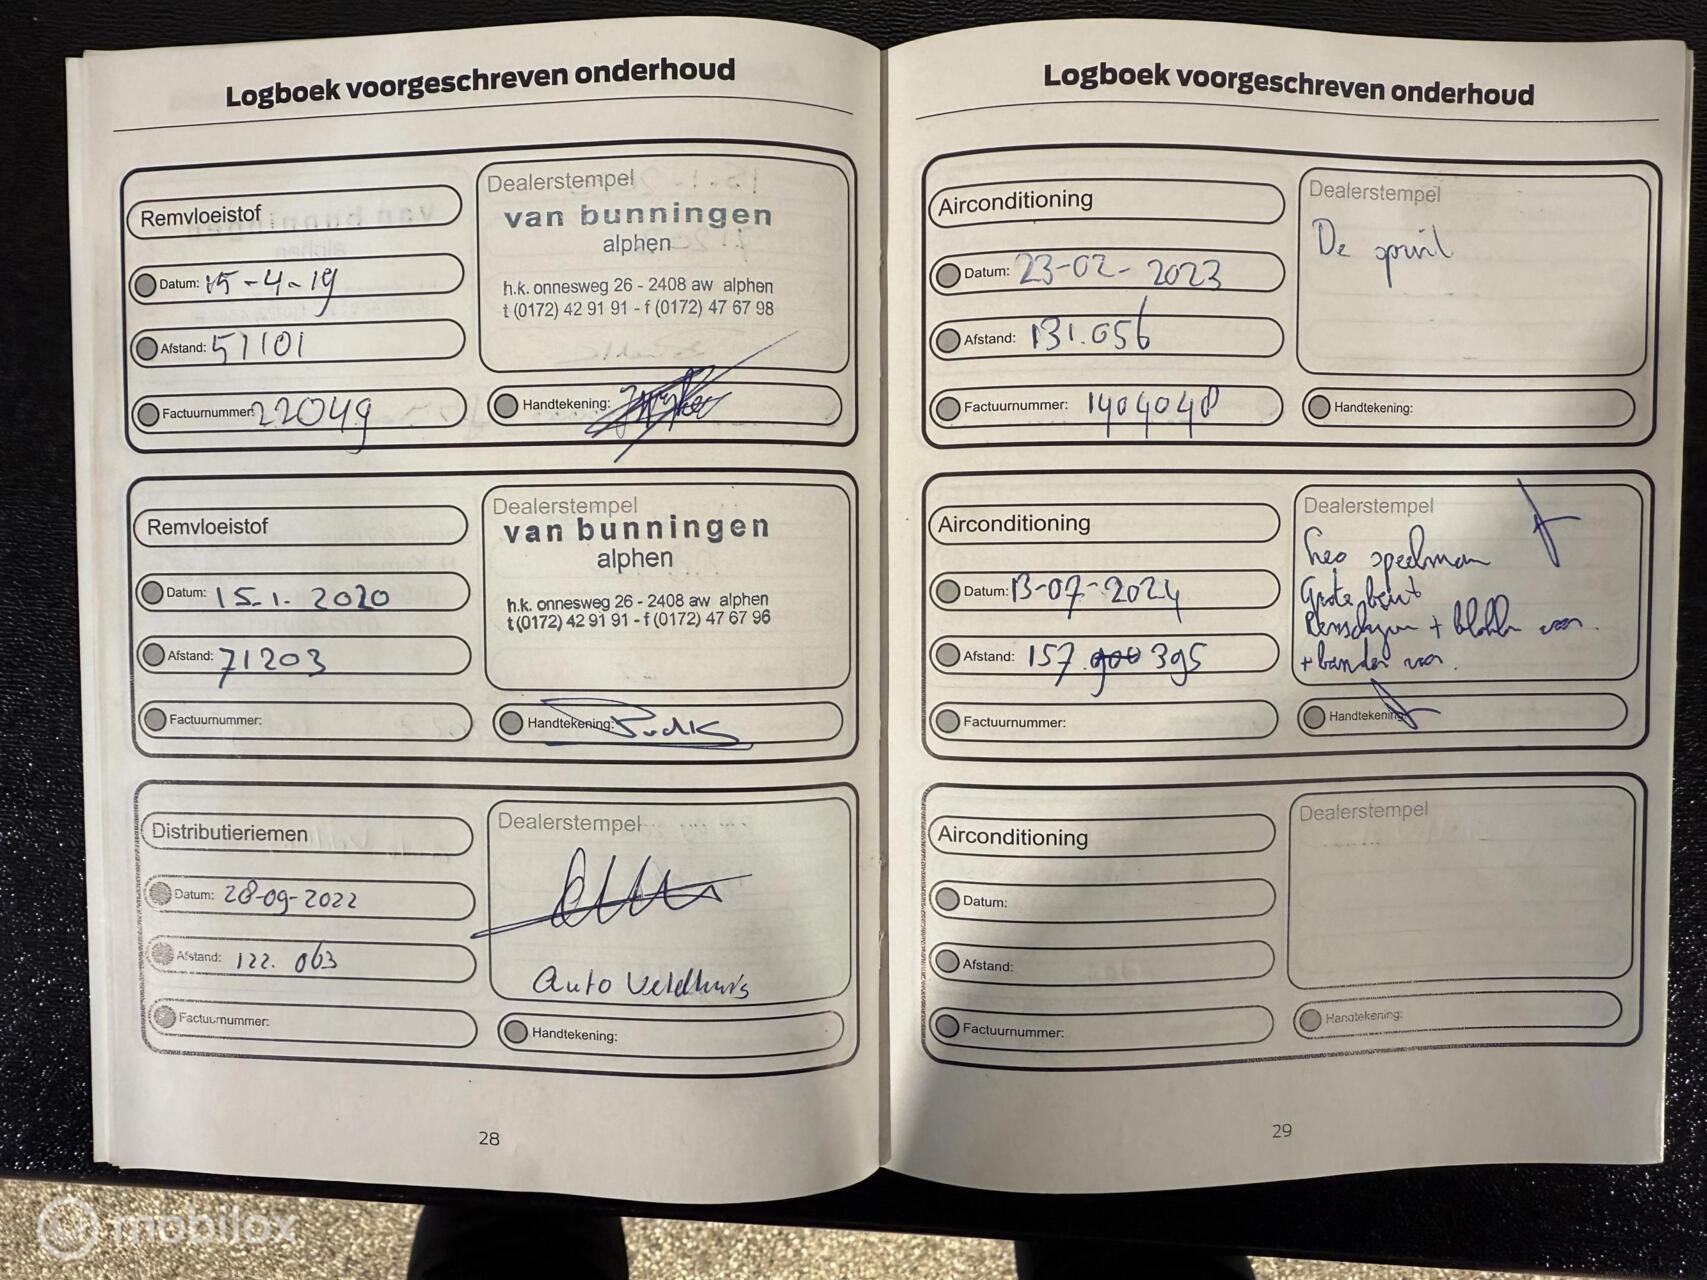 Logboek voorgeschreven onderhoud
Remvloeistof
Datum: 15-4-19
Afstand: 51101
Factuurnummer: 22049
Dealerstempel
van bunningen
alphen
h.k. onnesweg 26 - 2408 aw alphen
t (0172) 42 91 91 - f (0172) 47 67 98
Handtekening:
Remvloeistof
Datum: 15.1.2020
Afstand: 71203
Factuurnummer:
Dealerstempel
van bunningen
alphen
h.k. onnesweg 26 - 2408 aw alphen
t (0172) 42 91 91 - f (0172) 47 67 96
Handtekening:
Distributieriemen
Datum: 28-09-2022
Afstand: 122.063
Factuurnummer:
Dealerstempel
Auto Veldhuis
Handtekening:
28
Logboek voorgeschreven onderhoud
Airconditioning
Datum: 23-02-2023
Afstand: 131.056
Factuurnummer: 1404048
Dealerstempel
De
Handtekening:
Airconditioning
Datum: 13-07-2024
Afstand: 157.900 395
Factuurnummer:
Dealerstempel
Leo speelman
Grote beurt
Remschijven + blokken voor.
+ banden voor.
Handtekening:
Airconditioning
Datum:
Afstand:
Factuurnummer:
Dealerstempel
Handtekening:
29
mobilox